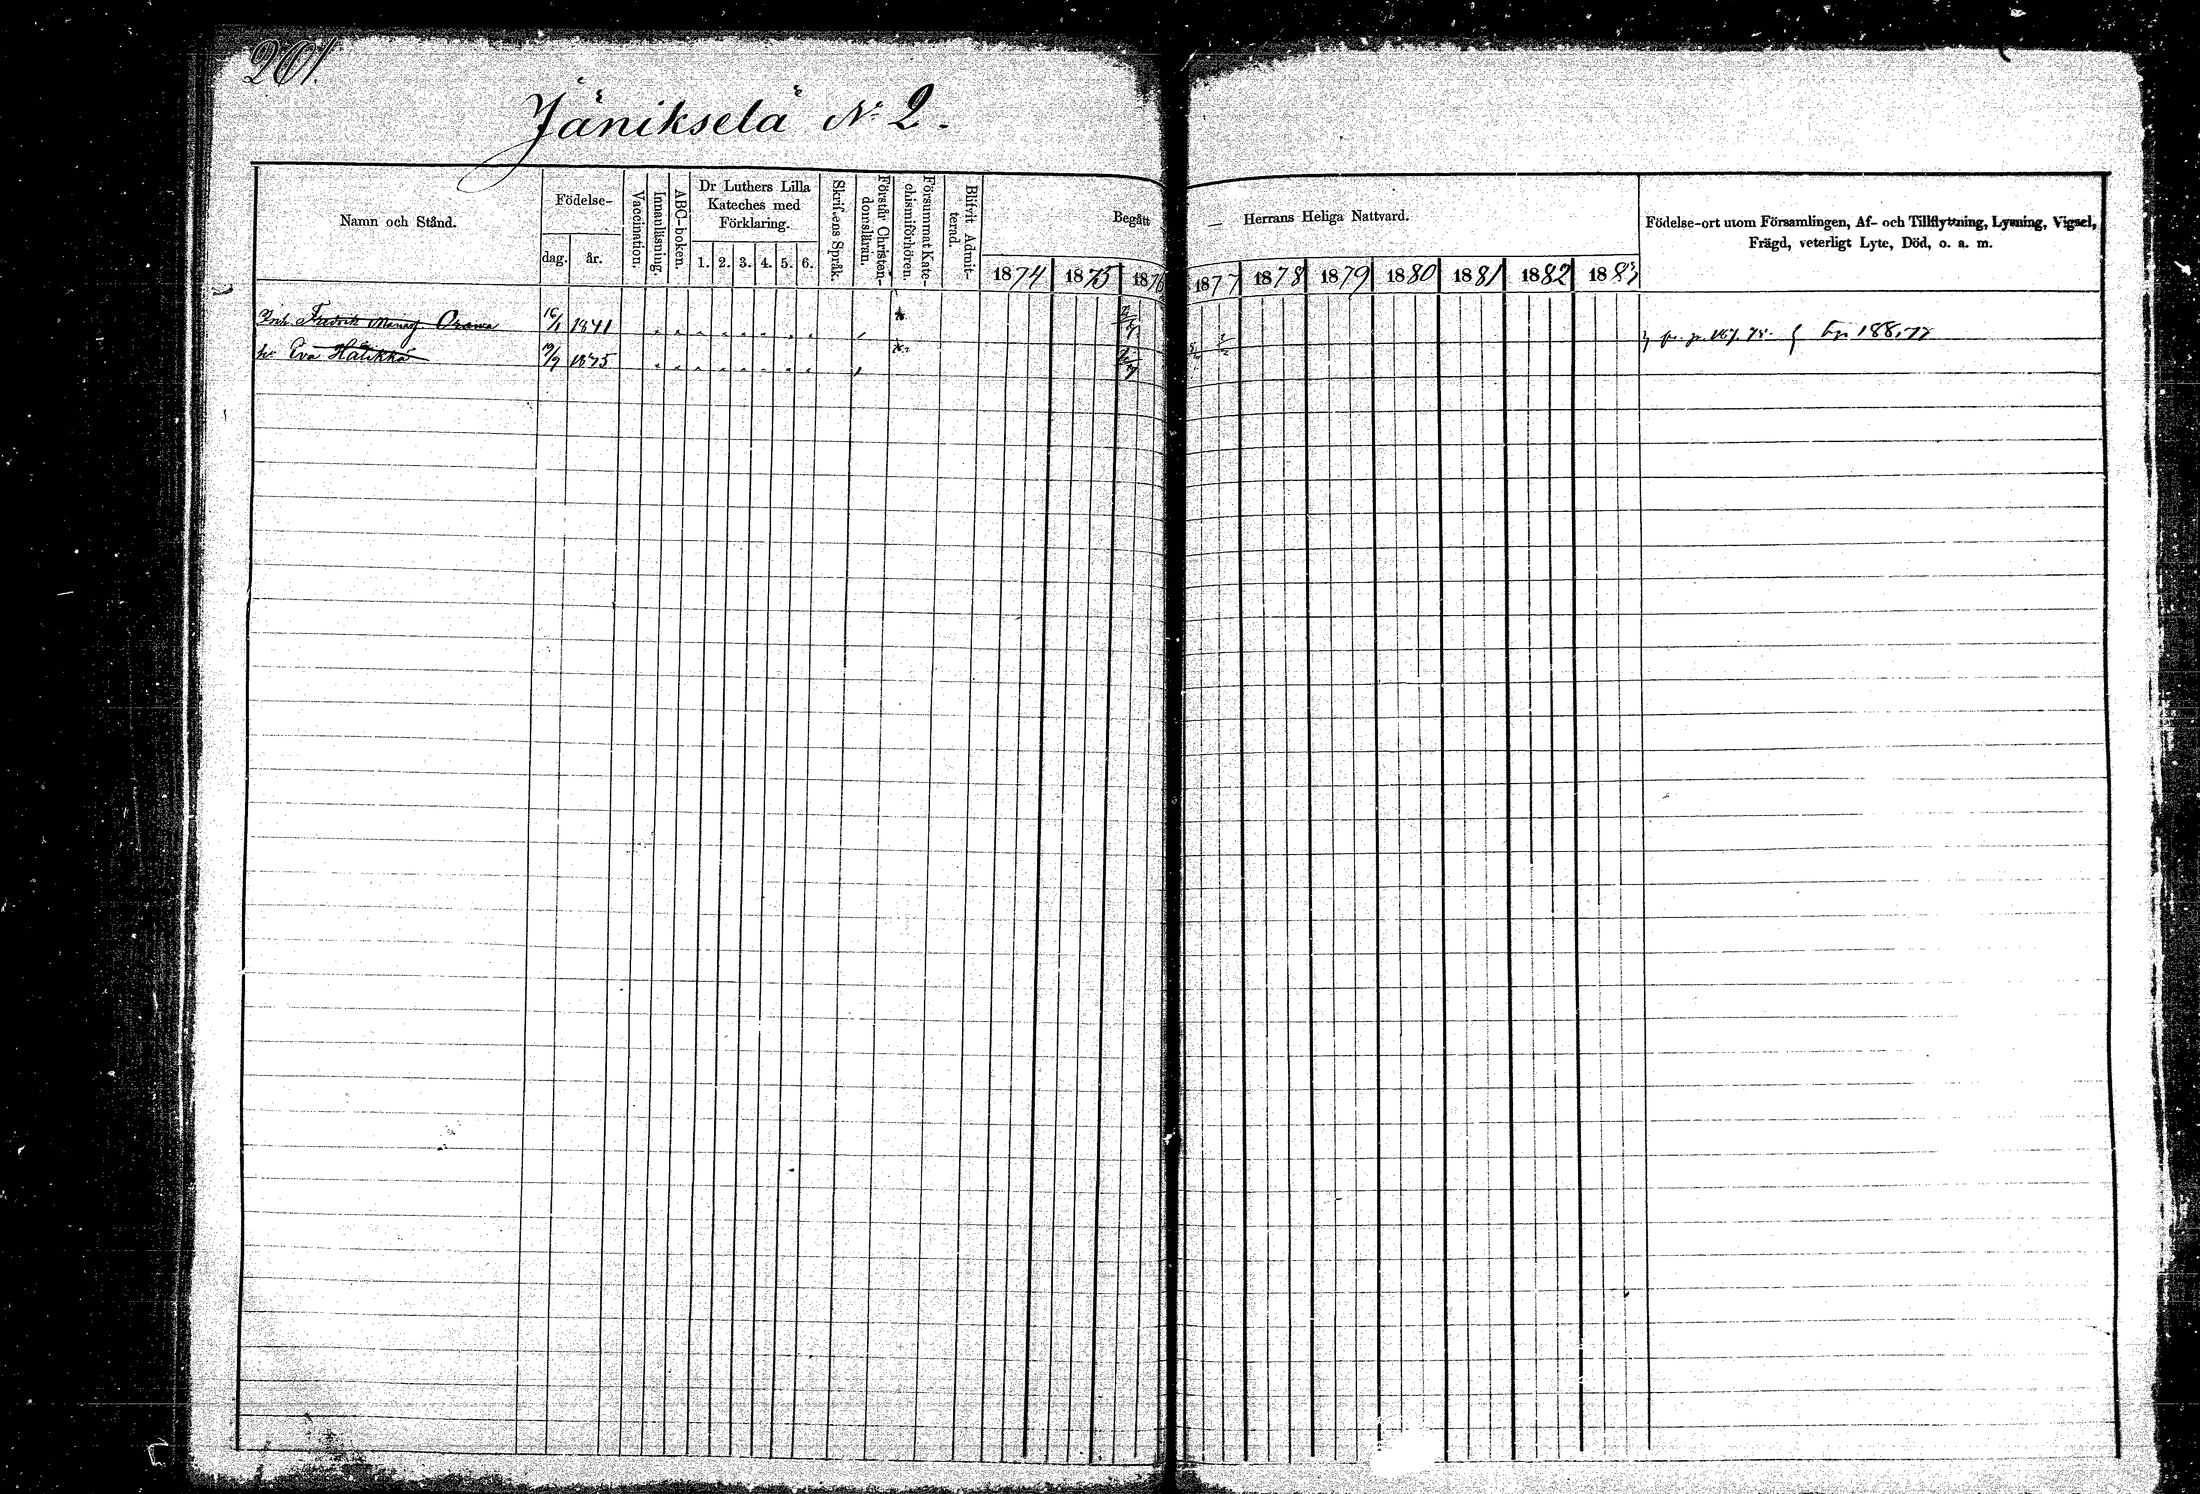 201.
Jäniksela N:o 2.
Namn och Stånd.
Födelse-
dag. år.
Vaccination.
Innanläsning.
ABC-boken.
Dr Luthers Lilla Kateches med Förklaring.
1. 2. 3. 4. 5. 6.
Skriftens Språk.
Förstår Christendomsläran.
Försummat Katechismiförhören.
Blifvit Admitterad.
Begått — Herrans Heliga Nattvard.
1874 1875 1876 1877 1878 1879 1880 1881 1882 1883
Födelse-ort utom Församlingen, Af- och Tillflyttning, Lysning, Vigsel,
Frägd, veterligt Lyte, Död, o. a. m.
Inh. Fredrik Orawa 16/1 1841 188.77
Eva Hälikkä 19/9 1845